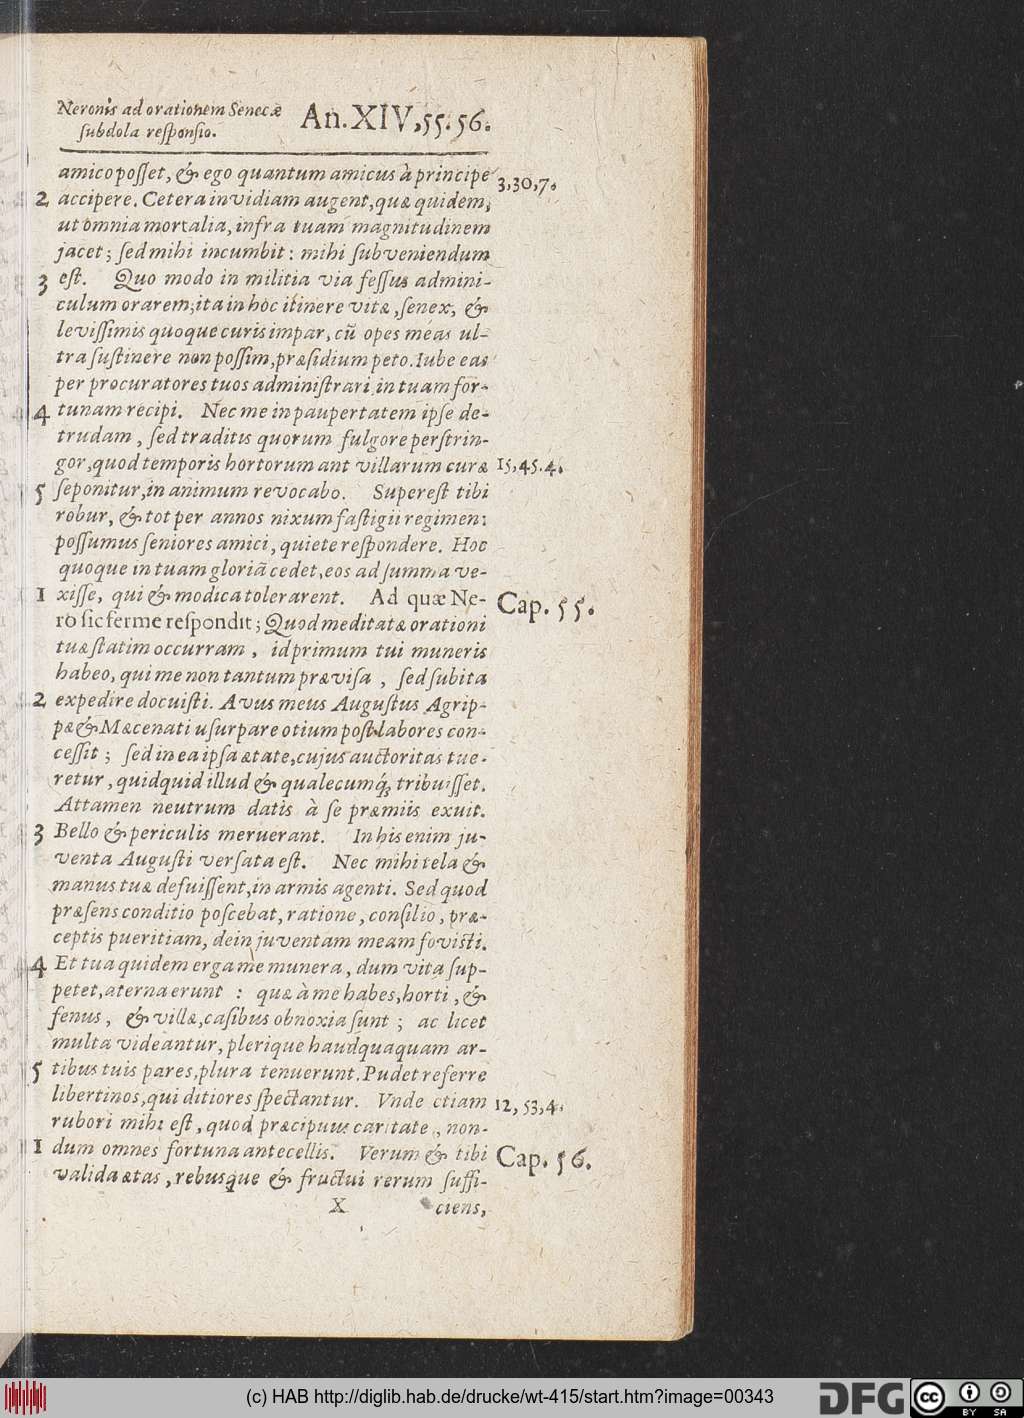 Neronis ad orationem Senecæ
ſubdola reſponſio.
An. XIV, 55. 56.
amico poſſet, & ego quantum amicus à principe
3, 30, 7.
2 accipere. Cetera invidiam augent, quæ quidem,
ut omnia mortalia, infra tuam magnitudinem
jacet; ſed mihi incumbit: mihi ſubveniendum
3 eſt. Quo modo in militia via feſſus admini-
culum orarem, ita in hoc itinere vitæ, ſenex, &
leviſſimis quoque curis impar, cũ opes meas ul-
tra ſuſtinere non poſſim, præſidium peto. Iube eas
per procuratores tuos adminiſtrari in tuam for-
4 tunam recipi. Nec me in paupertatem ipſe de-
trudam, ſed traditis quorum fulgore perſtrin-
gor, quod temporis hortorum ant villarum curæ
15, 45. 4.
5 ſeponitur, in animum revocabo. Supereſt tibi
robur, & tot per annos nixum faſtigii regimen:
poſſumus ſeniores amici, quiete reſpondere. Hoc
quoque in tuam gloriã cedet, eos ad ſumma ve-
1 xiſſe, qui & modica tolerarent. Ad quæ Ne-
Cap. 55.
ro ſic ferme reſpondit; Quod meditatæ orationi
tuæ ſtatim occurram, id primum tui muneris
habeo, qui me non tantum præviſa, ſed ſubita
2 expedire docuiſti. Avus meus Auguſtus Agrip-
pæ & Mæcenati uſurpare otium poſt labores con-
ceſſit; ſed in ea ipſa ætate, cujus auctoritas tue-
retur, quidquid illud & qualecumq́; tribuiſſet.
Attamen neutrum datis à ſe præmiis exuit.
3 Bello & periculis meruerant. In his enim ju-
venta Auguſti verſata eſt. Nec mihi tela &
manus tuæ defuiſſent, in armis agenti. Sed quod
præſens conditio poſcebat, ratione, conſilio, præ-
ceptis pueritiam, dein juventam meam foviſti.
4 Et tua quidem erga me munera, dum vita ſup-
petet, æterna erunt: quæ à me habes, horti, &
fenus, & villæ, caſibus obnoxia ſunt; ac licet
multa videantur, plerique haudquaquam ar-
5 tibus tuis pares, plura tenuerunt. Pudet referre
libertinos, qui ditiores ſpectantur. Vnde etiam
12, 53, 4.
rubori mihi eſt, quod præcipuus caritate, non-
1 dum omnes fortuna antecellis. Verum & tibi
Cap. 56.
valida ætas, rebusque & fructui rerum ſuffi-
X
ciens,
(c) HAB http://diglib.hab.de/drucke/wt-415/start.htm?image=00343
DFG
cc BY SA